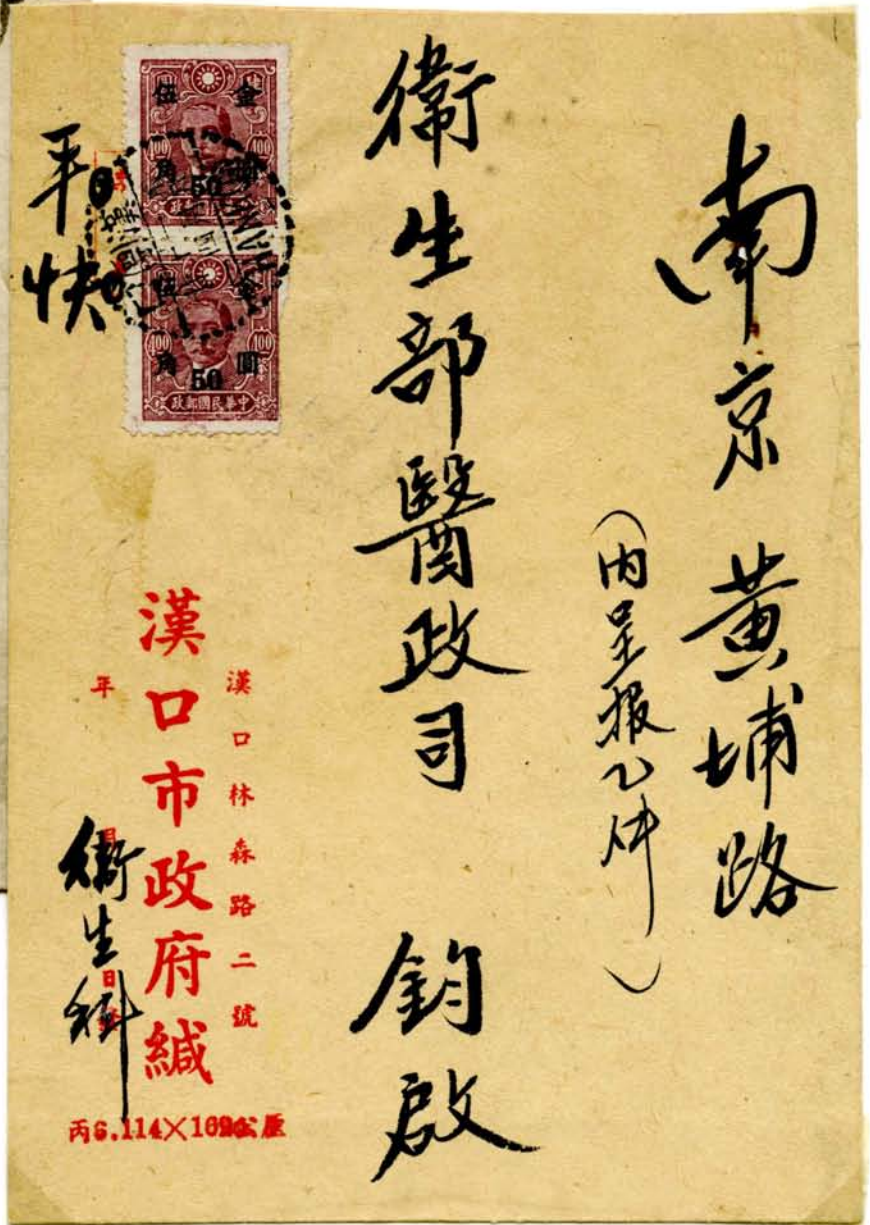 南京黃埔路
(内呈报乙件)
衞生部醫政司 鈞啟
平快
金圓
伍角
50
400 400
中華民國郵政
金圓
伍角
50
400 400
中華民國郵政
漢口林森路二號
漢口市政府緘
年 月 日
衞生科
丙6.114×162公厘